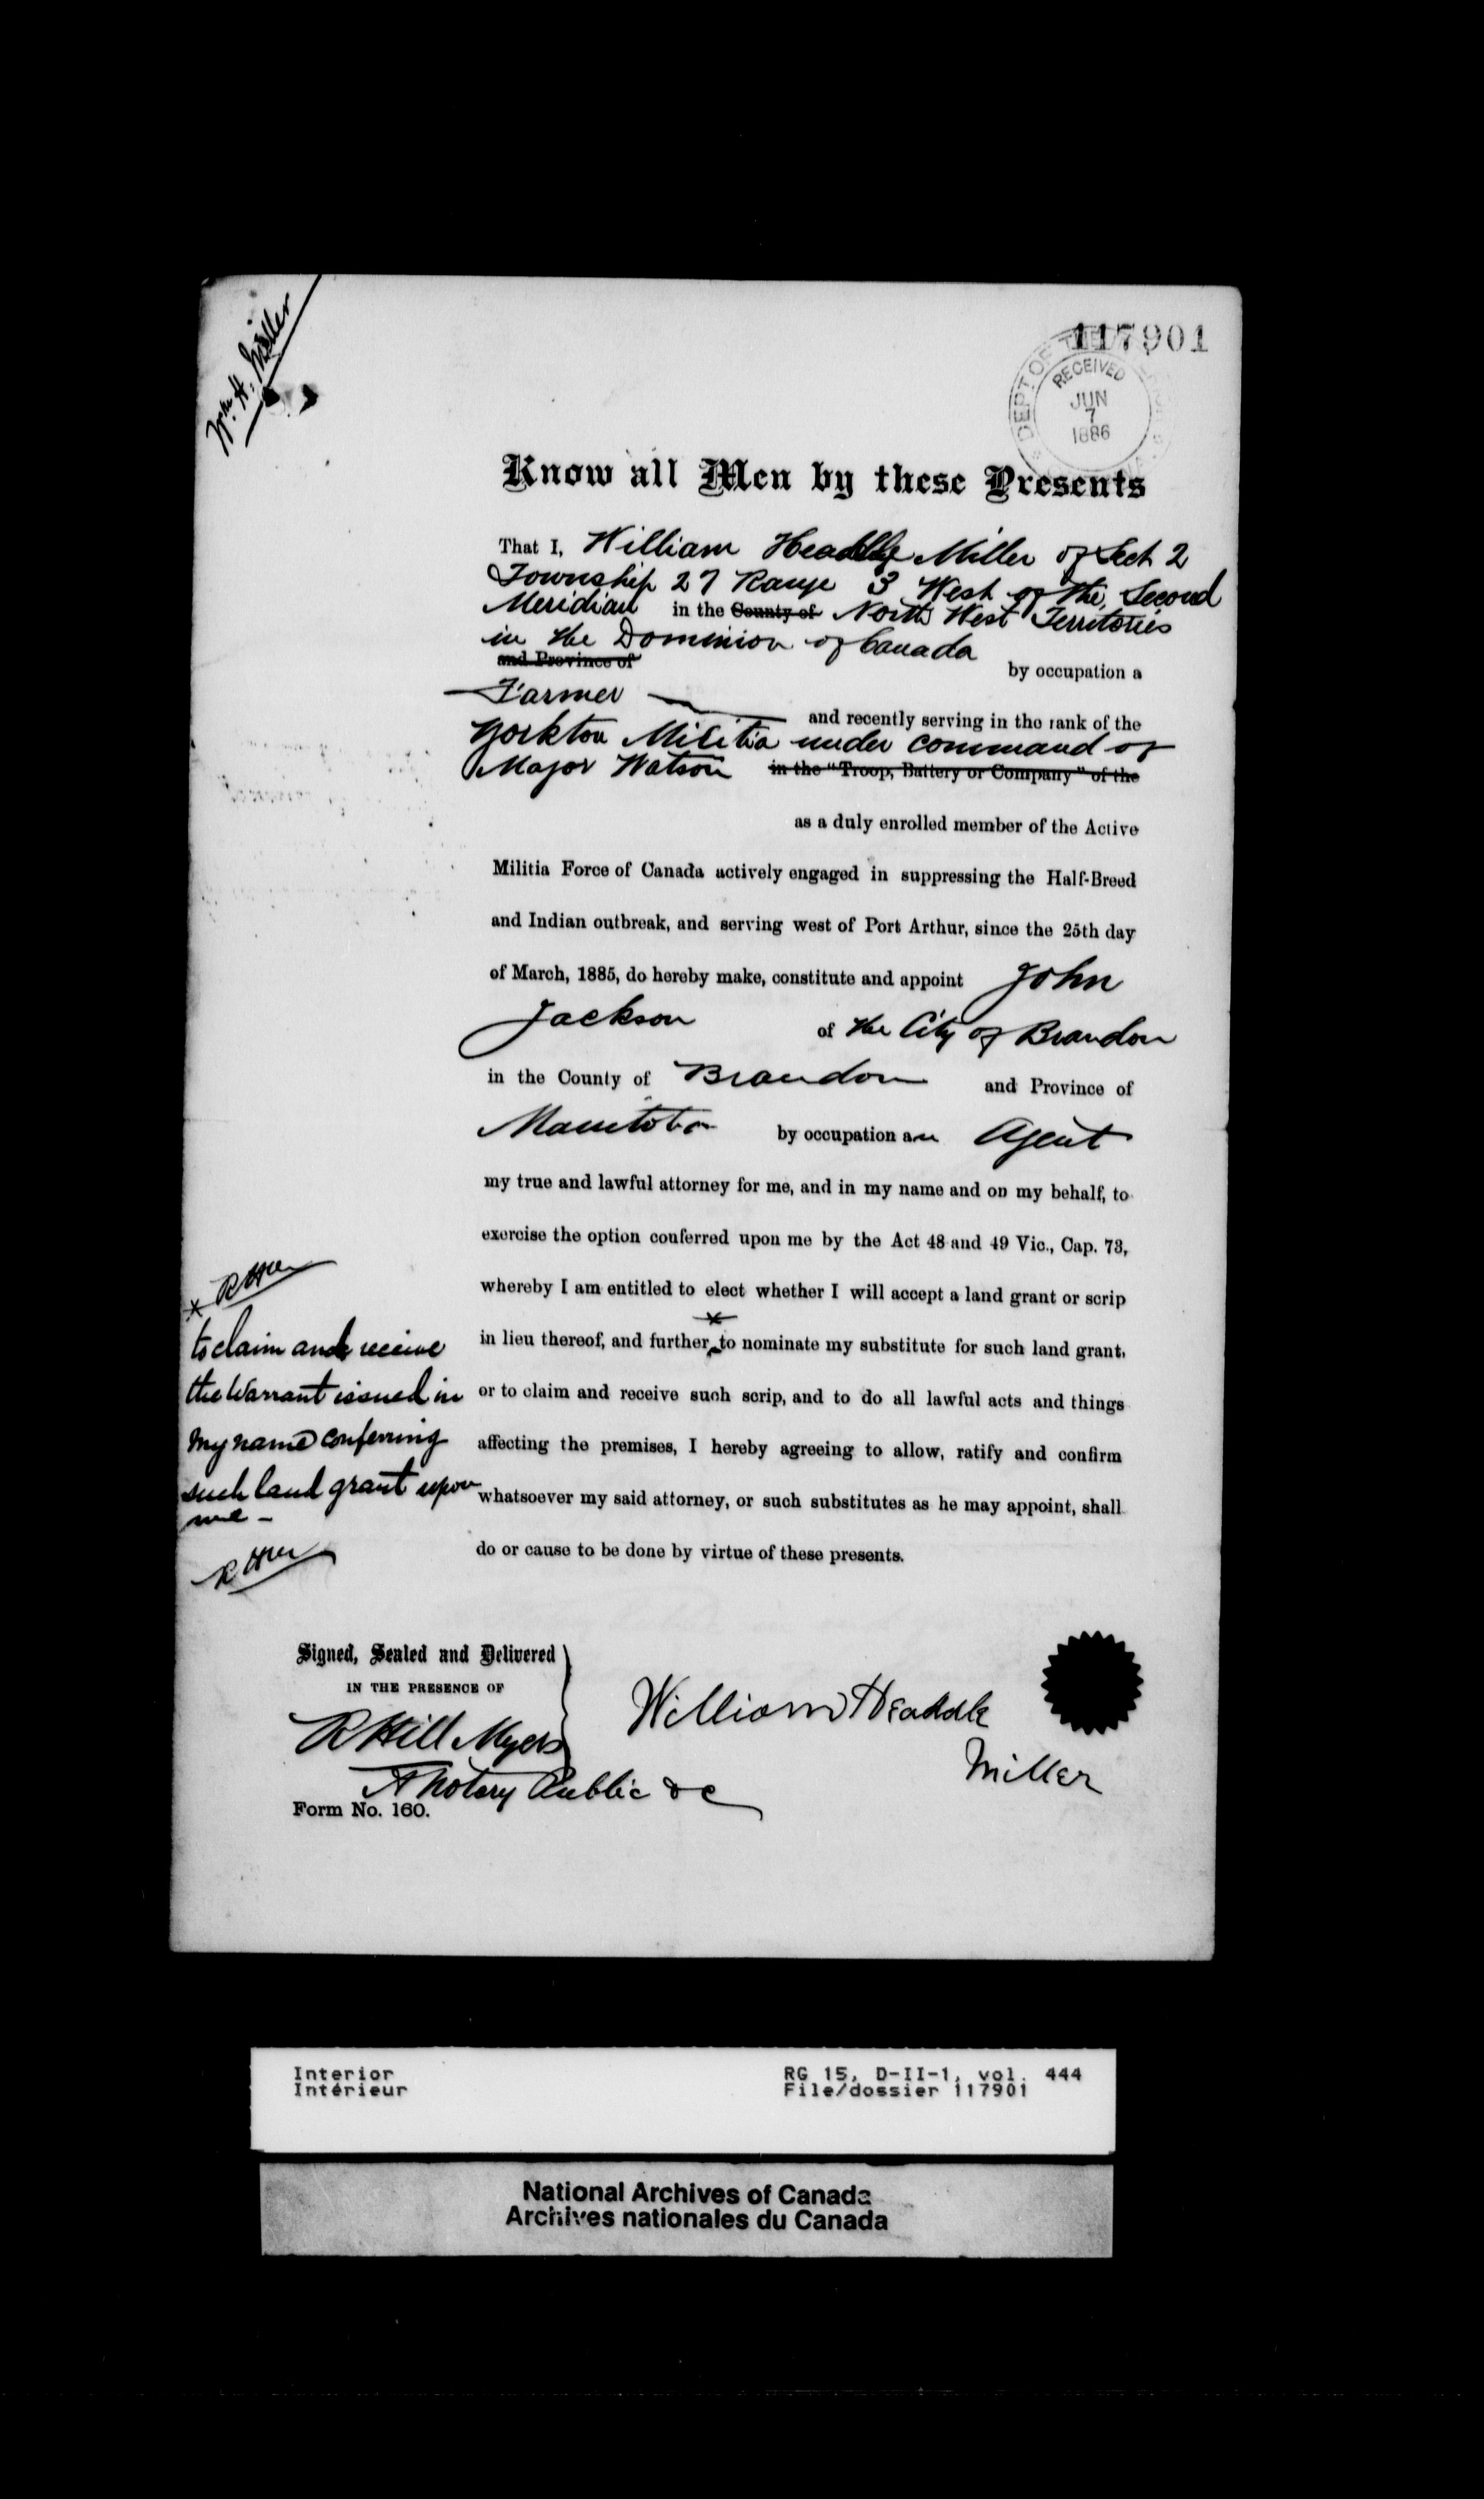 Wm. H. Miller
117901
DEPT. OF THE
RECEIVED
JUN
7
1886
Know all Men by these Presents
That I, William Headdle Miller of Sect 2
Township 27 Range 3 West of the Second
Meridian in the County of North West Territories
in the Dominion of Canada
and Province of
by occupation a
Farmer and recently serving in the rank of the
Yorkton Militia under command of
Major Watson in the "Troop, Battery or Company" of the
as a duly enrolled member of the Active
Militia Force of Canada actively engaged in suppressing the Half-Breed
and Indian outbreak, and serving west of Port Arthur, since the 25th day
of March, 1885, do hereby make, constitute and appoint John
Jackson of the City of Brandon
in the County of Brandon and Province of
Manitoba by occupation an Agent
my true and lawful attorney for me, and in my name and on my behalf, to
exercise the option conferred upon me by the Act 48 and 49 Vic., Cap. 73,
whereby I am entitled to elect whether I will accept a land grant or scrip
in lieu thereof, and further * to nominate my substitute for such land grant,
or to claim and receive such scrip, and to do all lawful acts and things
affecting the premises, I hereby agreeing to allow, ratify and confirm
whatsoever my said attorney, or such substitutes as he may appoint, shall
do or cause to be done by virtue of these presents.
* RHM
to claim and receive
the Warrant issued in
my name conferring
such land grant upon
me -
RHM
Signed, Sealed and Delivered
IN THE PRESENCE OF
R Hill Myers
A Notary Public &c
William Headdle
Miller
Form No. 160.
Interior
Intérieur
RG 15, D-II-1, vol. 444
File/dossier 117901
National Archives of Canada
Archives nationales du Canada